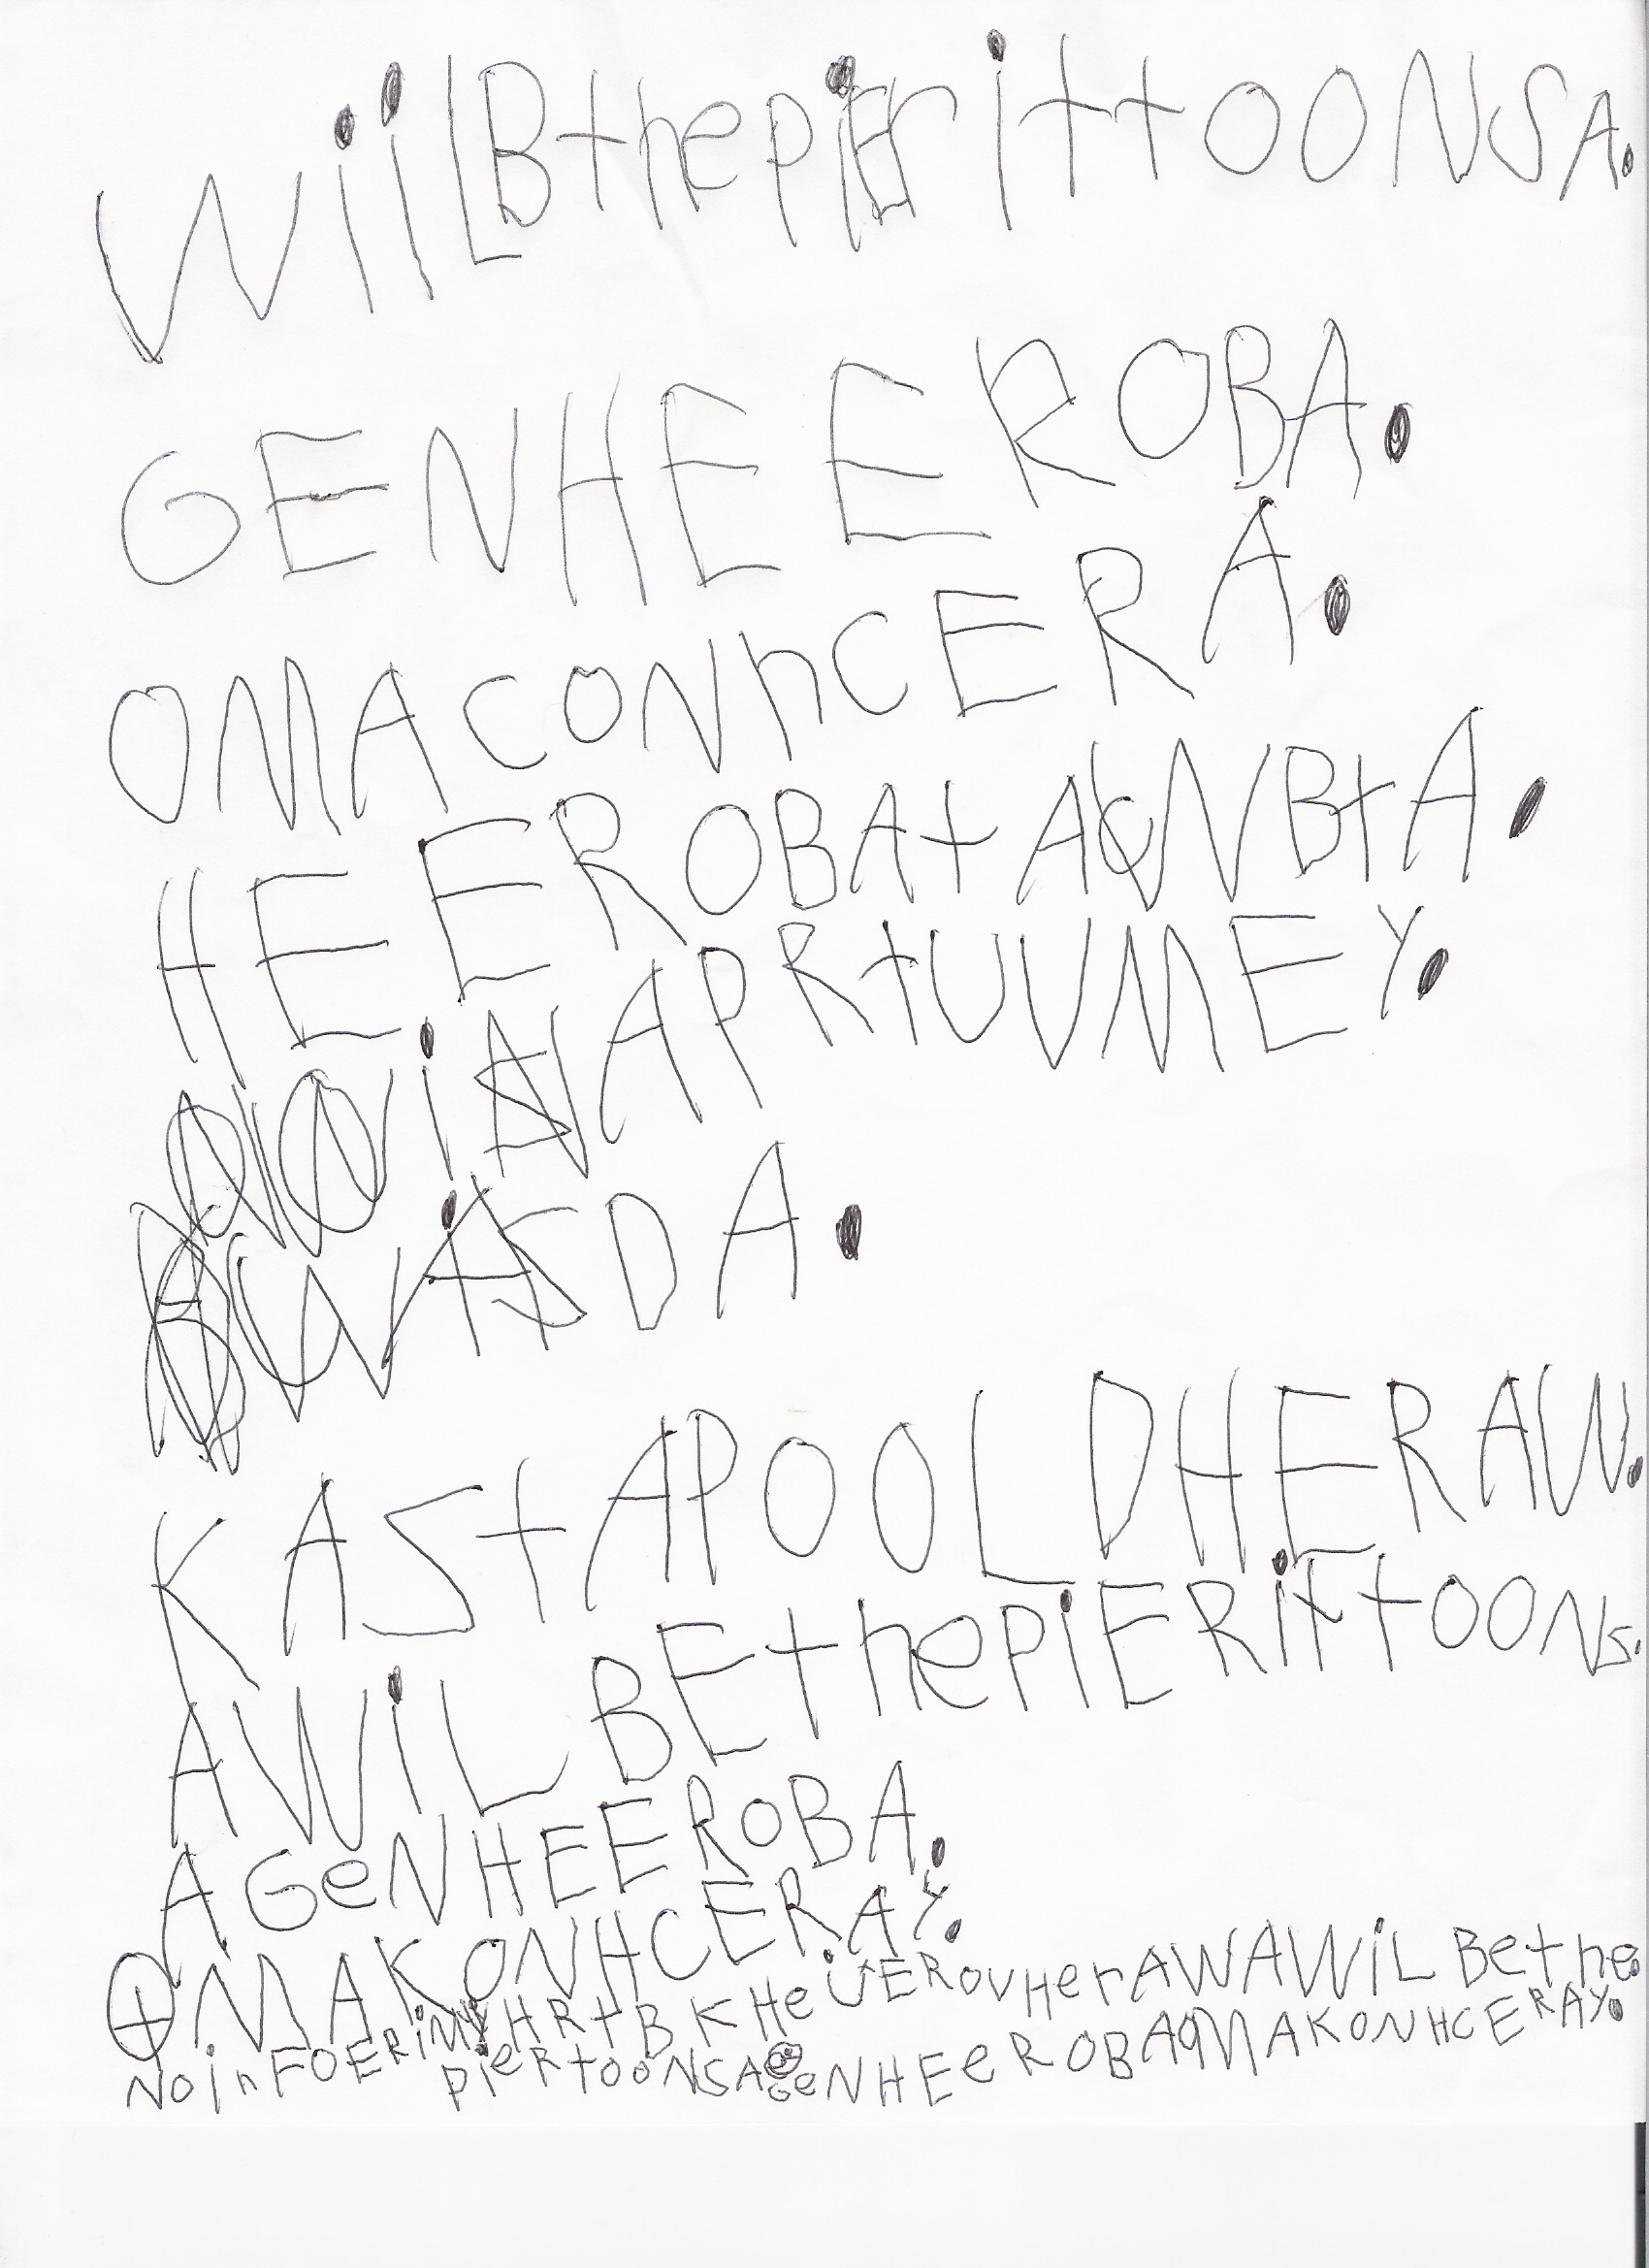 WiiLBthepiEr ittOONSA.
GENHEEROBA.
OMACONhCERA.
HEEROBAtANBtA.
iNAPRtUVMEY.
WASDA.
KAStAPOOLDHERAW.
AWiLBEthepiERittOONS.
AGeNHEEROBA.
OMAKONHCERAY.
NOinFOERiMYHRtBKHeUEROVHerAWAWiLBethe
PieRtOONSAGeNHEeROBAOMAKONHCERAY.